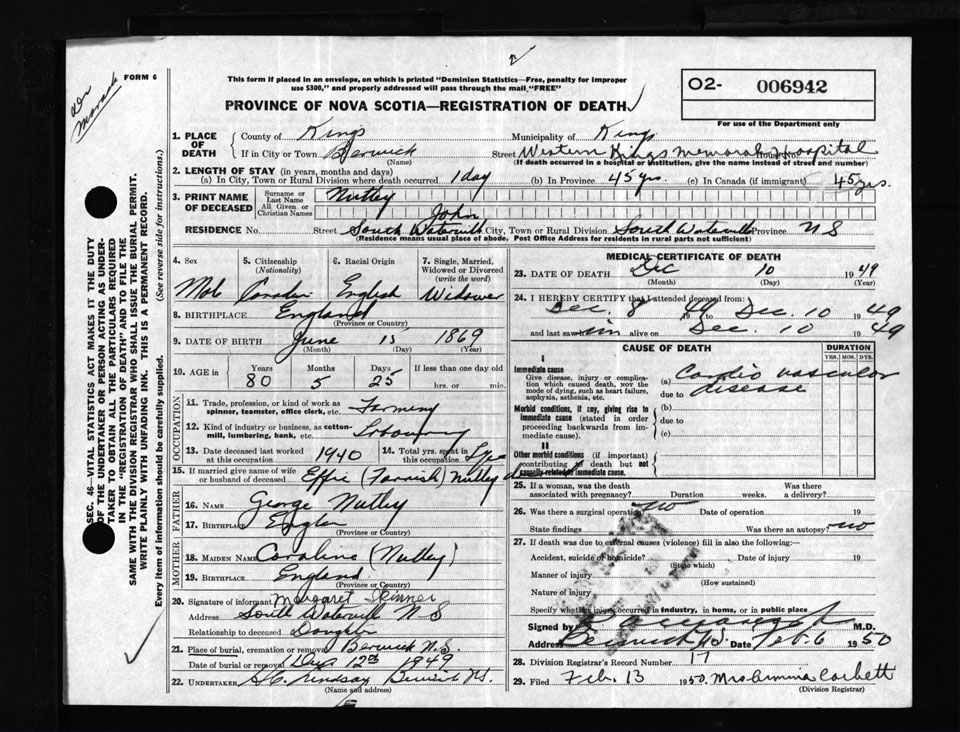 FORM 6
Dr
This form if placed in an envelope, on which is printed "Dominion Statistics—Free, penalty for improper
use $300," and properly addressed will pass through the mail "FREE"
PROVINCE OF NOVA SCOTIA—REGISTRATION OF DEATH
O2- 006942
For use of the Department only
SEC. 46—VITAL STATISTICS ACT MAKES IT THE DUTY
OF THE UNDERTAKER OR PERSON ACTING AS UNDER-
TAKER TO OBTAIN ALL THE PARTICULARS REQUIRED
IN THE "REGISTRATION OF DEATH" AND TO FILE THE
SAME WITH THE DIVISION REGISTRAR WHO SHALL ISSUE THE BURIAL PERMIT.
WRITE PLAINLY WITH UNFADING INK. THIS IS A PERMANENT RECORD.
Every item of information should be carefully supplied. (See reverse side for instructions.)
1. PLACE OF DEATH
County of Kings Municipality of Kings
If in City or Town Berwick Street Western Kings Memorial Hospital House No.
(Name) (If death occurred in a hospital or institution, give the name instead of street and number)
2. LENGTH OF STAY (in years, months and days)
(a) In City, Town or Rural Division where death occurred 1 day (b) In Province 45 yrs. (c) In Canada (if immigrant) 45 yrs.
3. PRINT NAME OF DECEASED
Surname or Last Name Nutley
All Given or Christian Names John
RESIDENCE No. Street South Waterville City, Town or Rural Division South Waterville Province N S
(Residence means usual place of abode. Post Office Address for residents in rural parts not sufficient)
4. Sex 5. Citizenship (Nationality) 6. Racial Origin 7. Single, Married, Widowed or Divorced (write the word)
English Widower
8. BIRTHPLACE England
(Province or Country)
9. DATE OF BIRTH June 15 1869
(Month) (Day) (Year)
10. AGE in Years Months Days If less than one day old
80 5 25 hrs. or min.
OCCUPATION
11. Trade, profession, or kind of work as spinner, teamster, office clerk, etc. Farming
12. Kind of industry or business, as cotton-mill, lumbering, bank, etc.
13. Date deceased last worked at this occupation 1940 14. Total yrs. spent in this occupation
15. If married give name of wife or husband of deceased Effie (Nutley
FATHER
16. Name George Nutley
17. Birthplace
(Province or Country)
MOTHER
18. MAIDEN NAME Caroline (Nutley)
19. BIRTHPLACE England
(Province or Country)
20. Signature of informant Margaret Skinner
Address South Waterville N S
Relationship to deceased Daughter
21. Place of burial, cremation or removal Berwick N.S.
Date of burial or removal Dec 12th 1949
22. UNDERTAKER Lindsay Berwick N.S.
(Name and address)
MEDICAL CERTIFICATE OF DEATH
23. DATE OF DEATH Dec 10 1949
(Month) (Day) (Year)
24. I HEREBY CERTIFY that I attended deceased from:
Dec. 8 1949 to Dec. 10 1949
and last saw him alive on Dec. 10 1949
CAUSE OF DEATH DURATION
YRS. MOS. DYS.
I
Immediate cause
Give disease, injury or complication which caused death, NOT the mode of dying, such as heart failure, asphyxia, asthenia, etc.
(a) Cardio vascular
due to disease
Morbid conditions, if any, giving rise to immediate cause (stated in order proceeding backwards from immediate cause).
(b)
due to
(c)
II
Other morbid conditions (if important) contributing to death but not causally related to immediate cause.
25. If a woman, was the death associated with pregnancy? Duration weeks. Was there a delivery?
26. Was there a surgical operation? no Date of operation 19
State findings Was there an autopsy? no
27. If death was due to external causes (violence) fill in also the following:—
Accident, suicide or homicide? Date of injury 19
(State which)
Manner of injury
(How sustained)
Nature of injury
Specify whether injury occurred in industry, in home, or in public place
Signed by M.D.
Address Berwick N.S. Date Feb. 6 1950
28. Division Registrar's Record Number 17
29. Filed Feb. 13 1950. Mrs Corbett
(Division Registrar)